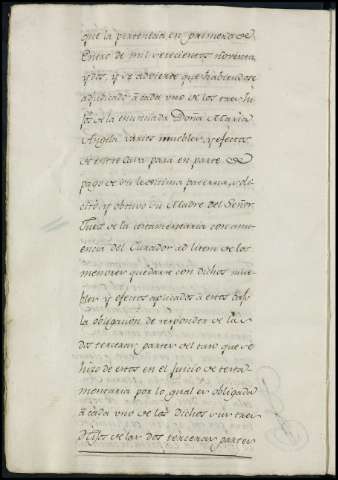 que la pertenecia en primero de
Enero de mil setecientos noventa
y dos, y se advierte que habiendose
adjudicado à cada uno de los tres hi-
jos de la enunciada Doña Maria
Angela varios muebles, y efectos
de entre Casa para en parte de
pago de su lexitima paterna, soli-
citó, y obtuvo su Madre del Señor
Juez de la testamentaria con anu-
encia del Curador ad litem de los
menores quedarse con dichos mue-
bles y efectos aplicados à estos bajo
la obligacion de responder de las
dos terceras partes del taso que se
hizo de estos en el juicio de testa-
mentaria por lo qual es obligada
à cada uno de los dichos sus tres
Hijos de las dos terceras partes